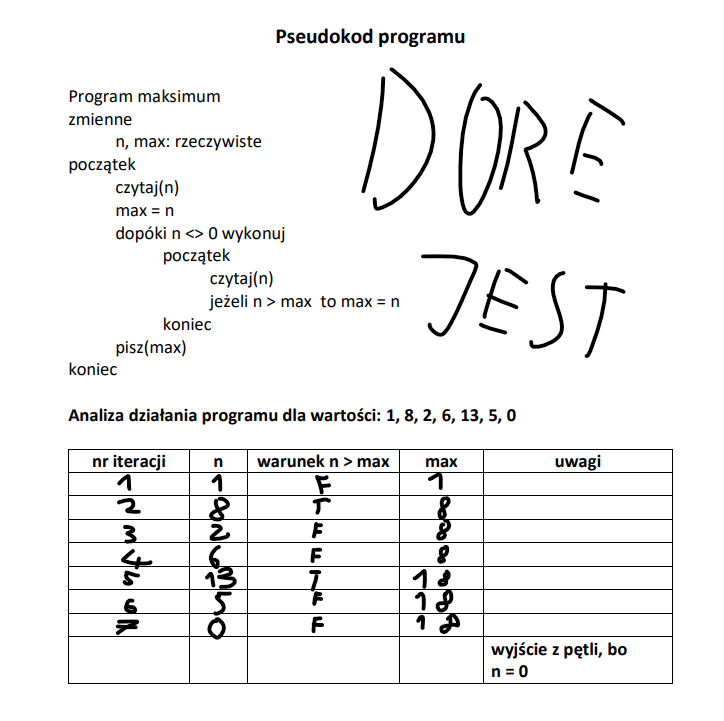 Pseudokod programu
DORE
JEST
Program maksimum
zmienne
n, max: rzeczywiste
początek
czytaj(n)
max = n
dopóki n <> 0 wykonuj
początek
czytaj(n)
jeżeli n > max to max = n
koniec
pisz(max)
koniec
Analiza działania programu dla wartości: 1, 8, 2, 6, 13, 5, 0
nr iteracji n warunek n > max max uwagi
1 1 F 1
2 8 T 8
3 2 F 8
4 6 F 8
5 13 T 18
6 5 F 18
7 0 F 18
wyjście z pętli, bo
n = 0